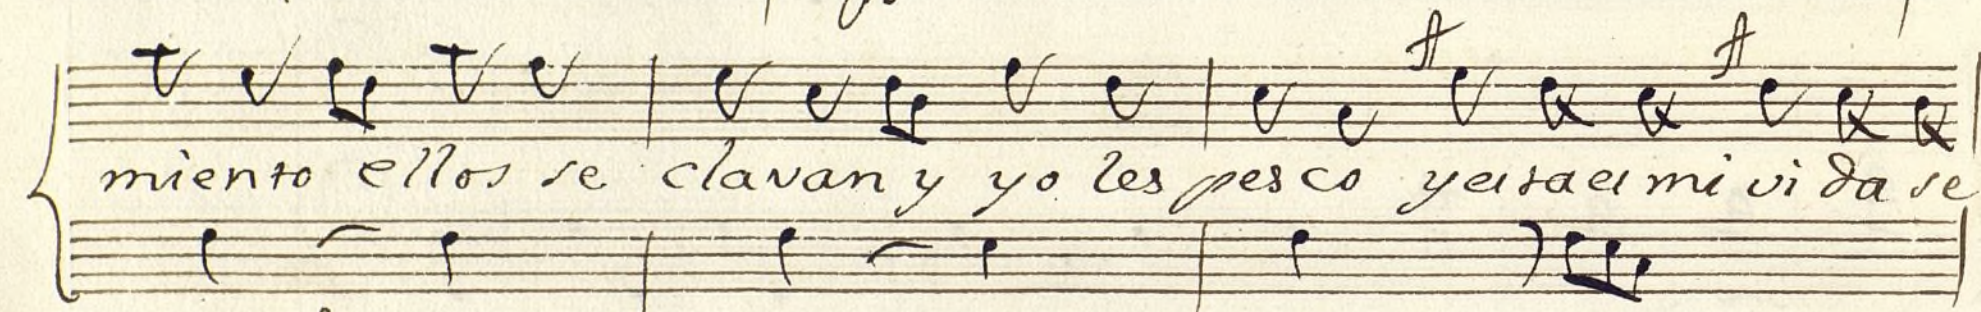 miento ellos se clavan y yo les pesco y esta es mi vida se